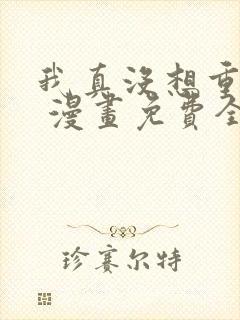 我真没想重
漫畫免費全
珍赛尔特